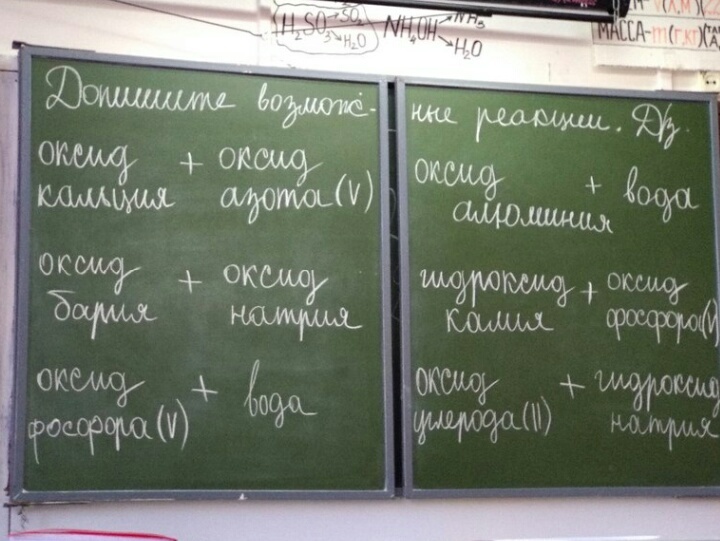 H₂SO₃ → SO₂ → H₂O NH₄OH → NH₃ → H₂O
МАССА-m(г,кг)
Допишите возмож-
оксид кальция + оксид азота (V)
оксид бария + оксид натрия
оксид фосфора (V) + вода
ные реакции. Дз.
оксид алюминия + вода
гидроксид калия + оксид фосфора (V)
оксид углерода (II) + гидроксид натрия